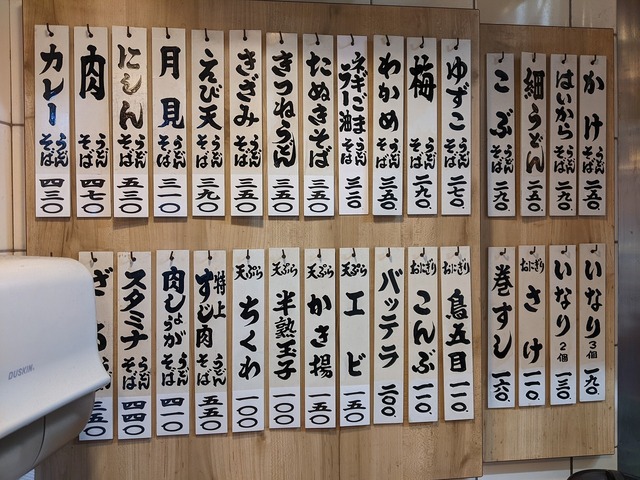 かけ うどん そば 二五〇
はいから うどん そば 二九〇
細うどん 二五〇
こぶ うどん そば 二九〇
ゆずこ うどん そば 二七〇
梅 うどん そば 二九〇
わかめ うどん そば 三五〇
ネギごまラー油 そば
たぬきそば 三五〇
きつねうどん 三五〇
きざみ うどん そば 三五〇
えび天 うどん そば 三九〇
月見 うどん そば 三一〇
にしん うどん そば 五三〇
肉 うどん そば 四七〇
カレー うどん そば 四三〇
いなり 3個 一九〇
いなり 2個 一三〇
おにぎり さけ 一一〇
巻すし 一六〇
おにぎり 鳥五目 一一〇
おにぎり こんぶ 一一〇
バッテラ 二〇〇
天ぷら エビ 一五〇
天ぷら かき揚 一五〇
天ぷら 半熟玉子 一〇〇
天ぷら ちくわ 一〇〇
特上 すじ肉 うどん そば 五五〇
肉しょうが うどん そば 四一〇
スタミナ うどん そば 四四〇
ざる 三五〇
DUSKIN